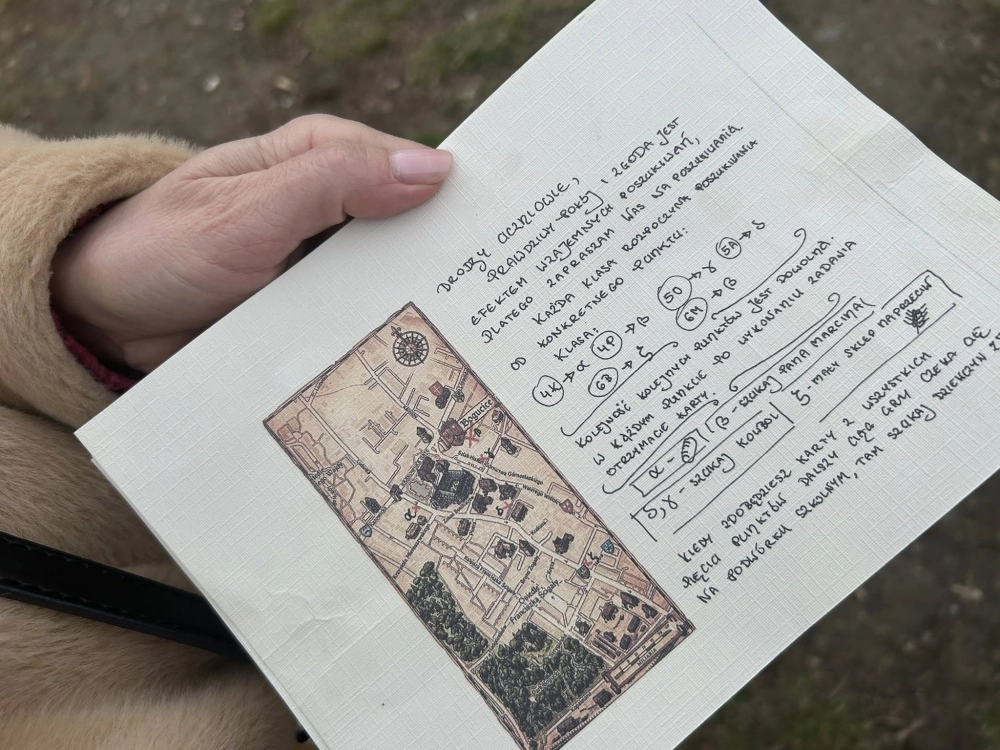 DRODZY UCZNIOWIE,
PRAWDZIWY POKÓJ I ZGODA JEST
EFEKTEM WZAJEMNYCH POSZUKIWAŃ,
DLATEGO ZAPRASZAM WAS NA POSZUKIWANIA
KAŻDA KLASA ROZPOCZYNA POSZUKIWANIA
OD KONKRETNEGO PUNKTU:
KLASA:
4K → α 4P → β 5O → γ 5A → δ
6B → ξ 6M → β
KOLEJNOŚĆ KOLEJNYCH PUNKTÓW JEST DOWOLNA.
W KAŻDYM PUNKCIE PO WYKONANIU ZADANIA
OTRZYMACIE KARTY.
α - β - SZUKAJ PANA MARCINA
δ, γ - SZUKAJ KOWBOJ ξ - MAŁY SKLEP NAPRZECIW
KIEDY ZDOBĘDZIESZ KARTY Z WSZYSTKICH
PIĘCIU PUNKTÓW DALSZY CIĄG GRY CZEKA CIĘ
NA PODWÓRKU SZKOLNYM, TAM SZUKAJ DZIEWCZYN
Bogucice
Osiedle
Franciszka